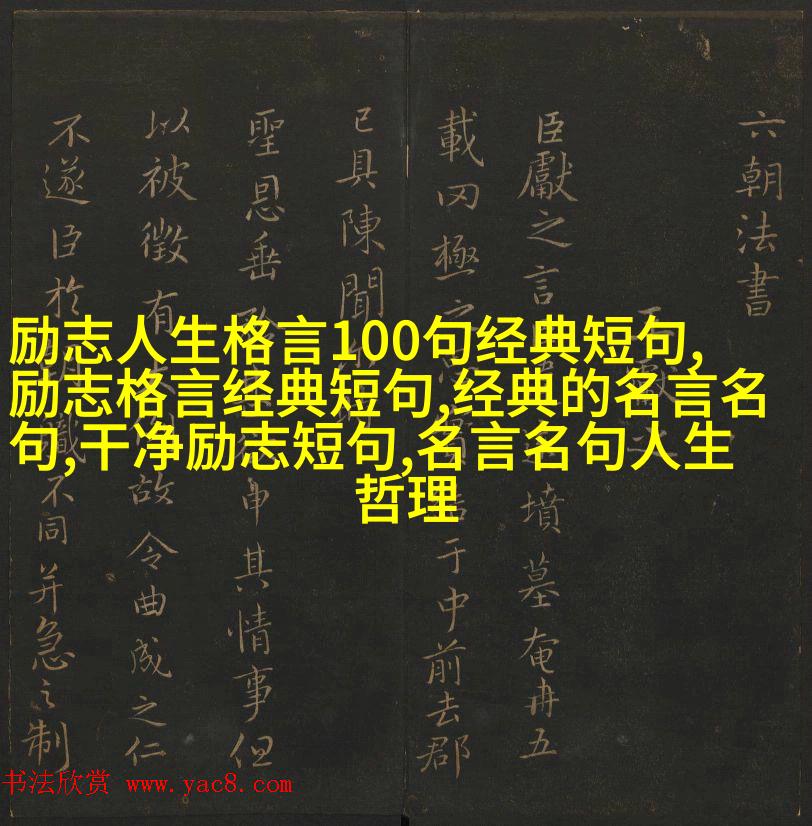 励志人生格言100句经典短句,
励志格言经典短句,经典的名言名
句,干净励志短句,名言名句人生
哲理
六朝法書
王獻之
臣獻之言墳墓奄冉五
載罔極之于中前去郡
已具陳聞
聖恩垂申其情事但
以被徵有故令曲成之仁
不遂臣於不同并急之制
书法欣赏 www.yac8.com